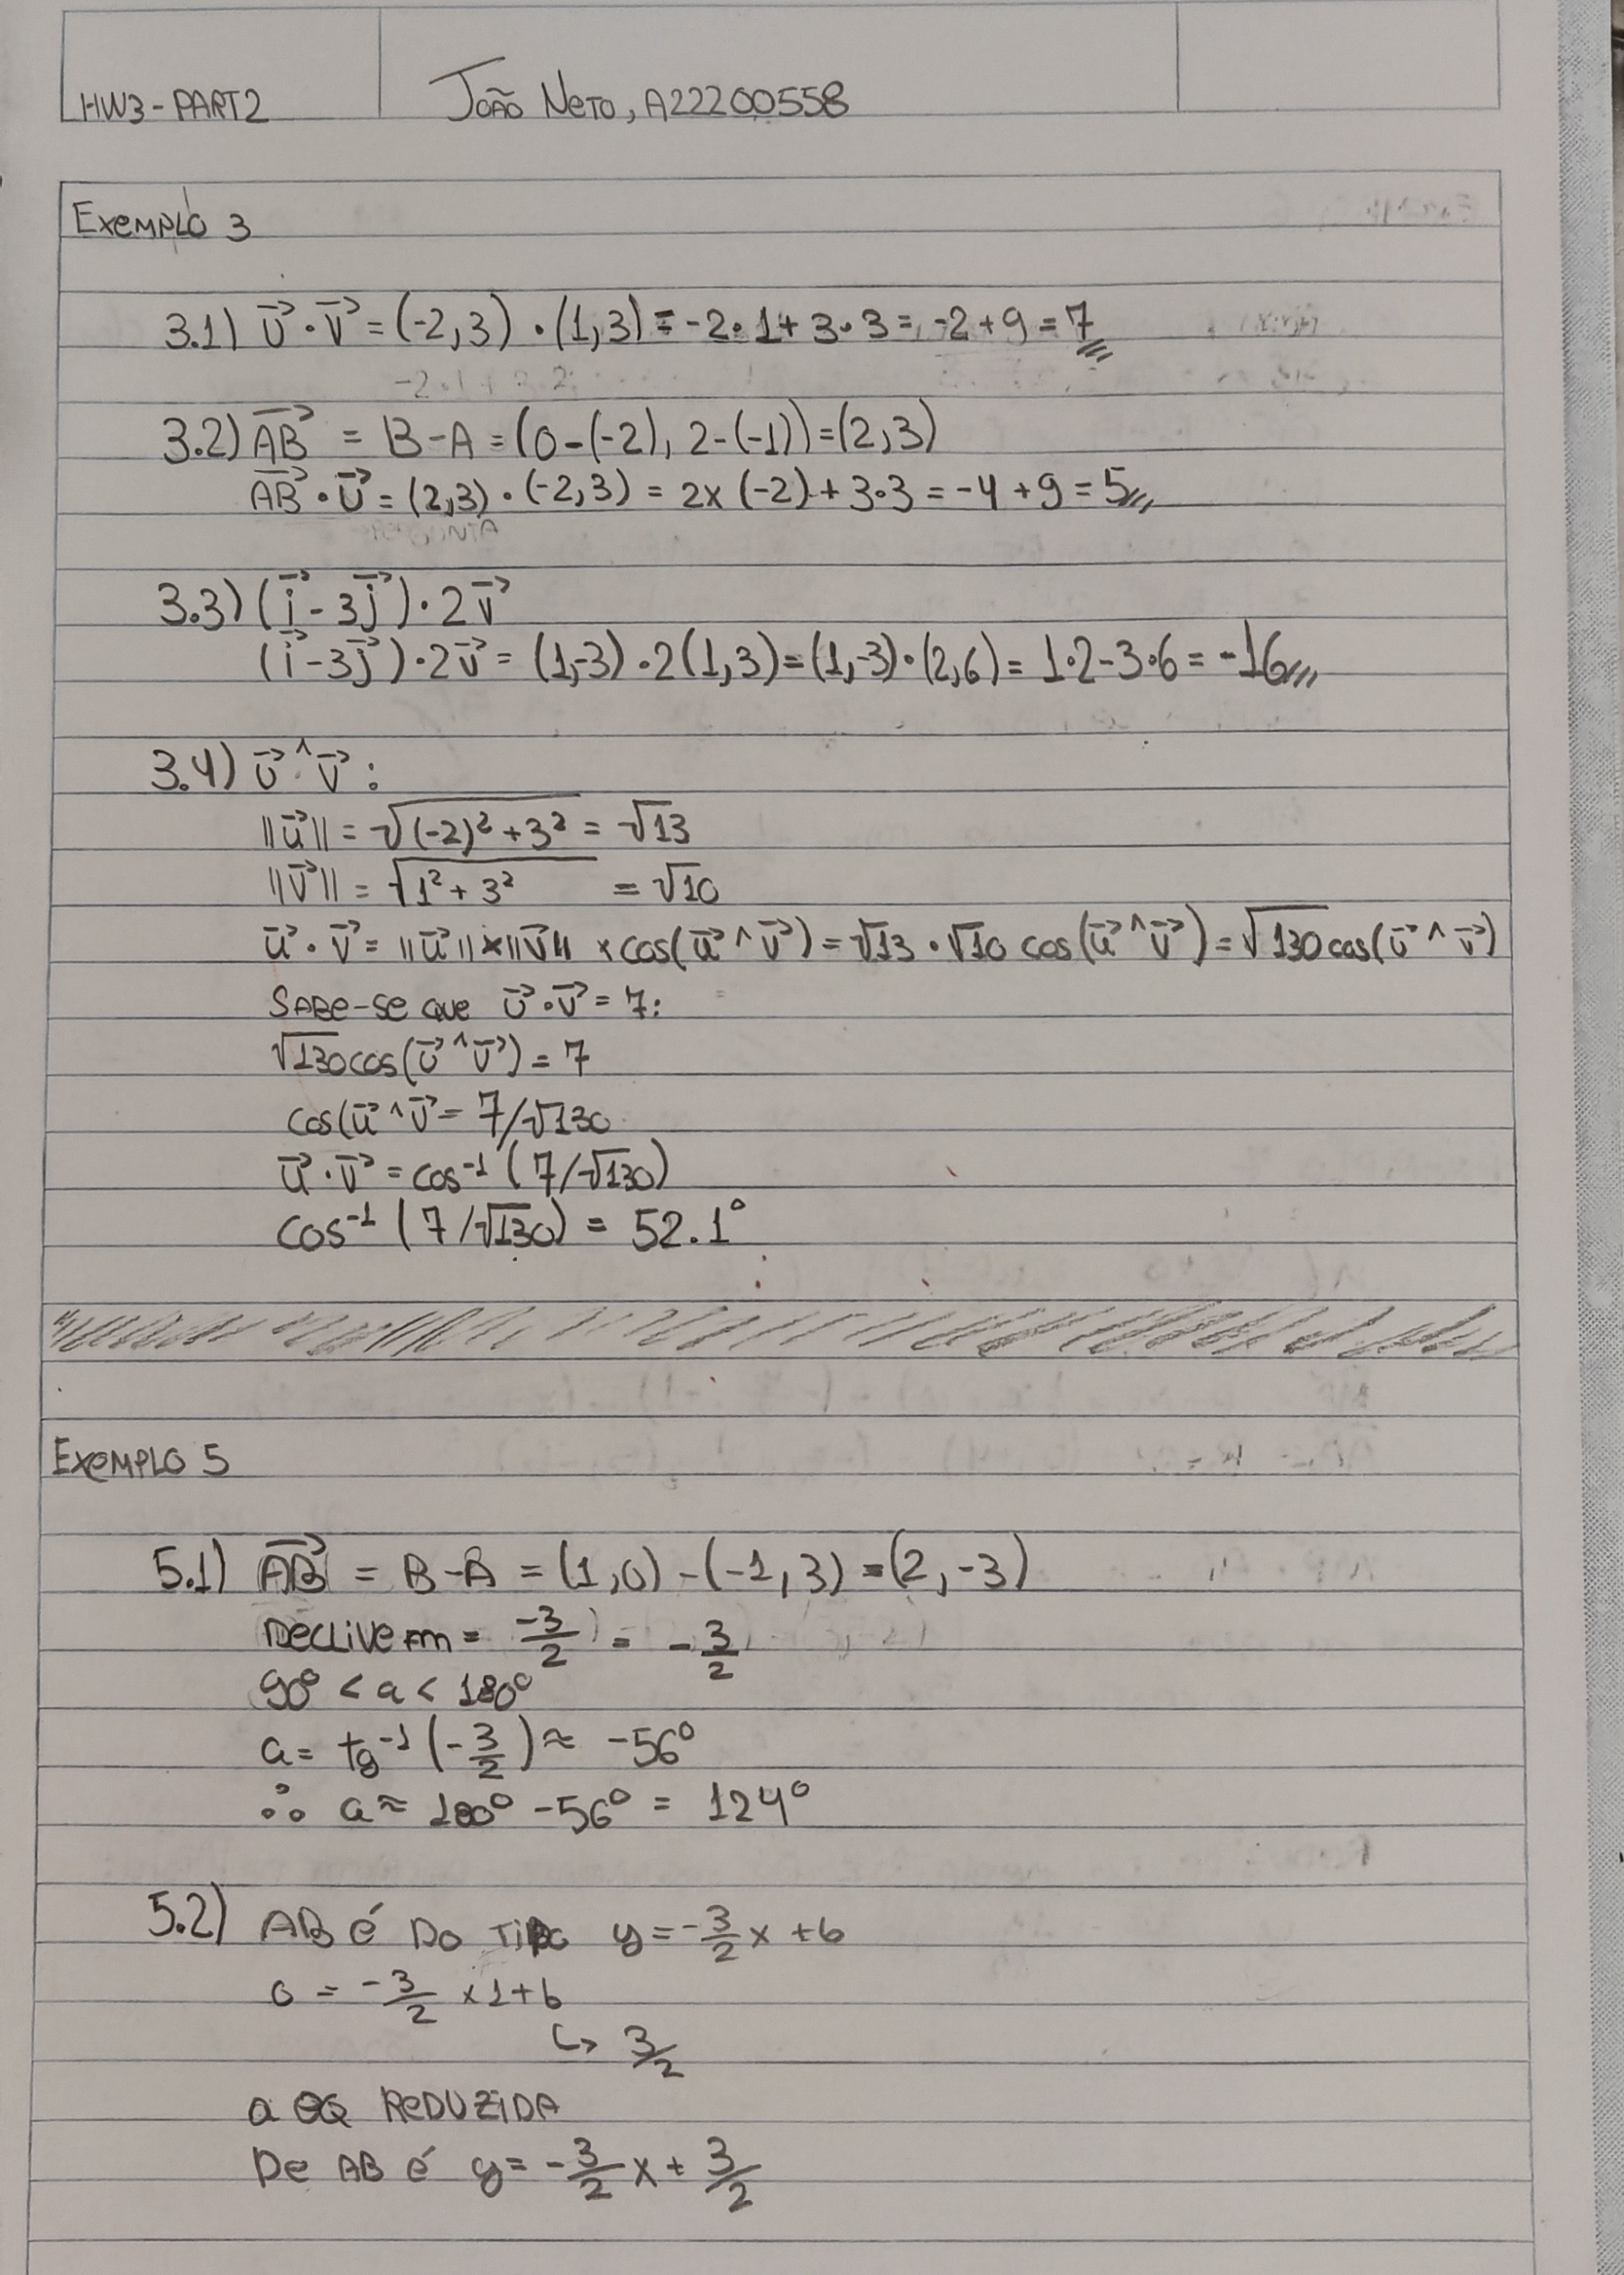 HW3-PART2
João Neto, A22200558
Exemplo 3
3.1) u⃗·v⃗ = (-2,3)·(1,3) = -2·1+3·3 = -2+9 = 7
-2·1+3·2
3.2) AB⃗ = B-A = (0-(-2), 2-(-1)) = (2,3)
AB⃗·u⃗ = (2,3)·(-2,3) = 2x(-2)+3·3 = -4+9 = 5
3.3) (i⃗-3j⃗)·2v⃗
(i⃗-3j⃗)·2v⃗ = (1,-3)·2(1,3) = (1,-3)·(2,6) = 1·2-3·6 = -16
3.4) u⃗^v⃗:
||u⃗|| = √(-2)²+3² = √13
||v⃗|| = √1²+3² = √10
u⃗·v⃗ = ||u⃗||×||v⃗|| × cos(u⃗^v⃗) = √13·√10 cos(u⃗^v⃗) = √130 cos(u⃗^v⃗)
Sabe-se que u⃗·v⃗ = 7:
√130 cos(u⃗^v⃗) = 7
cos(u⃗^v⃗ = 7/√130
u⃗·v⃗ = cos⁻¹(7/√130)
cos⁻¹(7/√130) = 52.1°
Exemplo 5
5.1) AB⃗ = B-A = (1,0)-(-1,3) = (2,-3)
Declive m = -3/2 = -3/2
90° < a < 180°
a = tg⁻¹(-3/2) ≈ -56°
∴ a ≈ 180° -56° = 124°
5.2) AB é do tipo y = -3/2 x + b
0 = -3/2 × 1 + b
↳ 3/2
a eq reduzida
de AB é y = -3/2 x + 3/2